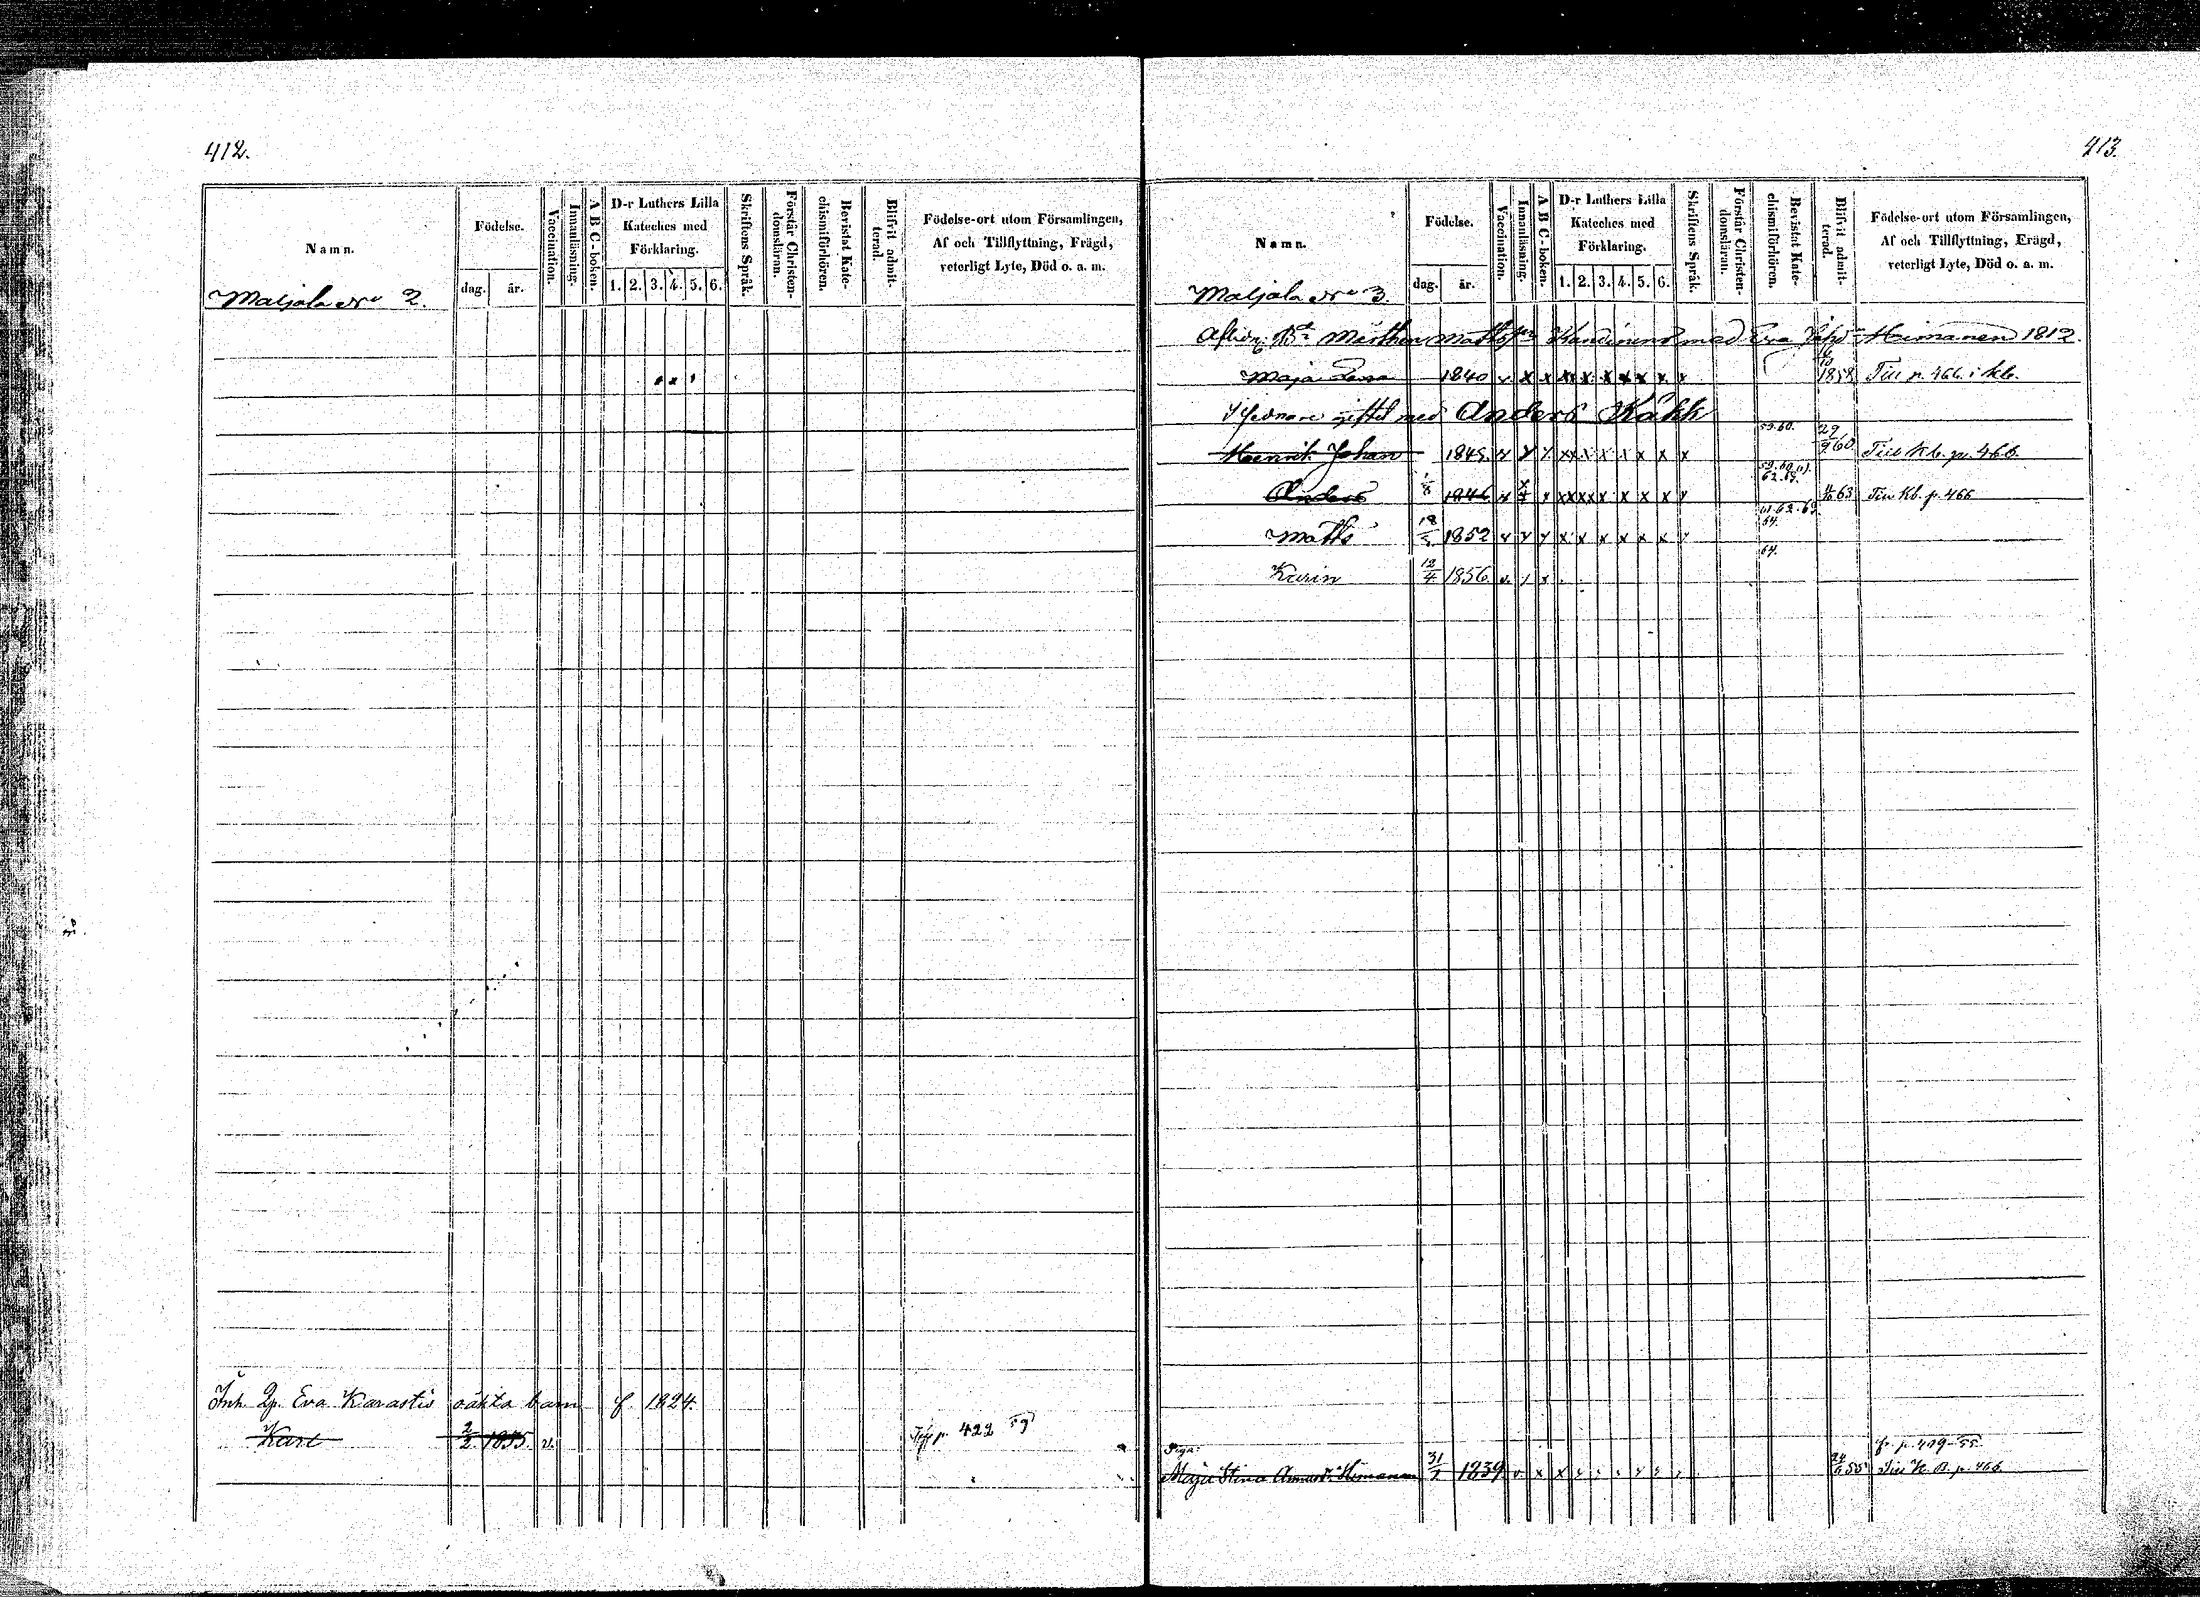 412.
Namn.
Födelse.
dag. år.
Vaccination.
Innanläsning.
A B C-boken.
D-r Luthers Lilla
Kateches med
Förklaring.
1. 2. 3. 4. 5. 6.
Skriftens Språk.
Förstår Christen-
domsläran.
Bevistat Kate-
chismiförhören.
Blifvit admit-
terad.
Födelse-ort utom Församlingen,
Af och Tillflyttning, Frägd,
veterligt Lyte, Död o. a. m.
Maljala No 2.
Inh. Qp. Eva Karastis oäkta barn f. 1824.
Karl 2/2 1855. v. p. 422 59
413.
Namn.
Födelse.
dag. år.
Vaccination.
Innanläsning.
A B C-boken.
D-r Luthers Lilla
Kateches med
Förklaring.
1. 2. 3. 4. 5. 6.
Skriftens Språk.
Förstår Christen-
domsläran.
Bevistat Kate-
chismiförhören.
Blifvit admit-
terad.
Födelse-ort utom Församlingen,
Af och Tillflyttning, Frägd,
veterligt Lyte, Död o. a. m.
Maljala No 3.
Mårthen Matts med Eva Himanen 1812.
Maja Lena 1840 v x x x x x x x x x 1858 Till p. 466. i kb.
giftet med Anders Käkk
59.60.
Henrik Johan 1845. v x x x x x x x x 29/9 60 Till Kb. p. 466.
Anders 1846 v x x x x x x x x 63 Till Kb. p. 466
Matts 18 1852 v x x x x x x x x 64.
Karin 12/4 1856. v. x 64.
Piga:
Maja Stina Himanen 31 1839 v. x x 55 Till K. B. p. 466.
fr. p. 409-55.